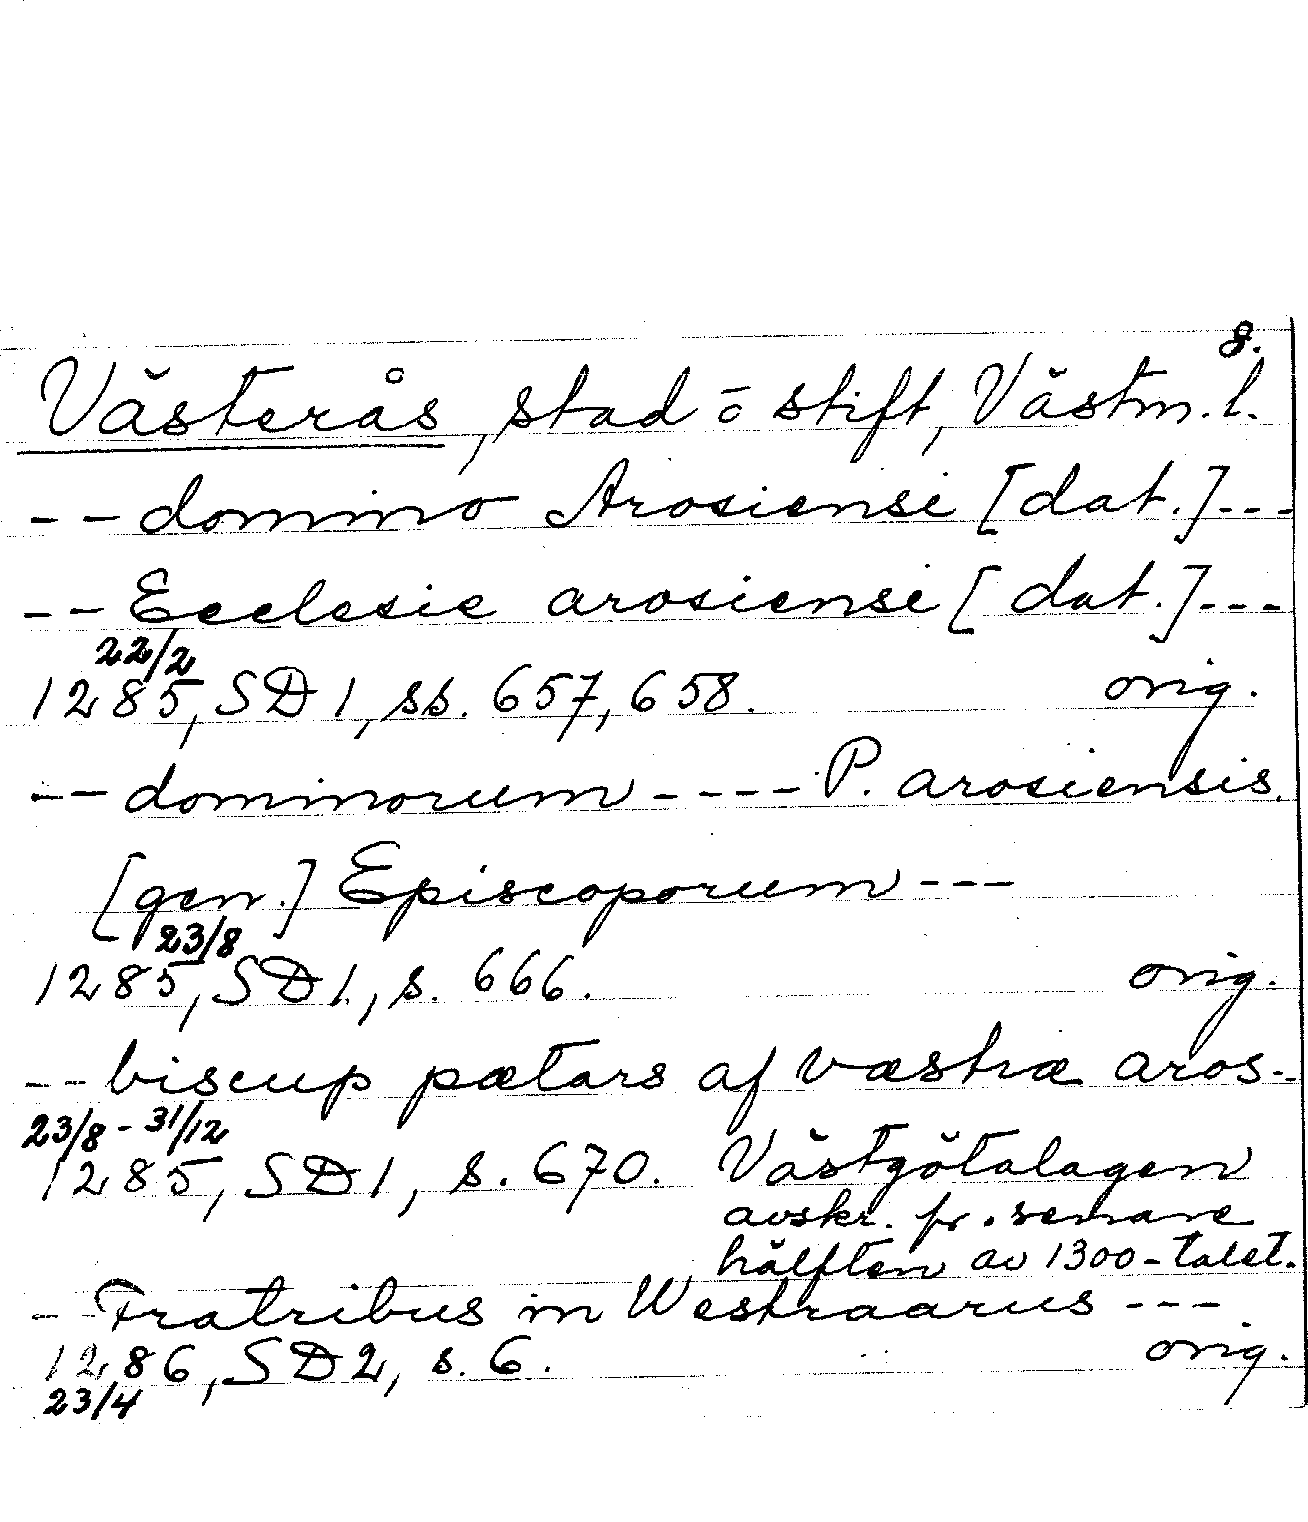 8.
Västerås, stad o stift, Västm. l.
-- domino Arosiensi [dat.] ---
-- Ecclesie arosiensi [dat.] ---
22/2
1285, SD 1, ss. 657, 658. orig.
-- dominorum ---- P. arosiensis
[gen.] Episcoporum ---
23/8
1285, SD 1, s. 666. orig.
-- biscup pætars af væstræ aros --
23/8 - 31/12
1285, SD 1, s. 670. Västgötalagen
avskr. fr. senare
hälften av 1300-talet.
-- Fratribus in Westraarus ---
1286, SD 2, s. 6. orig.
23/4